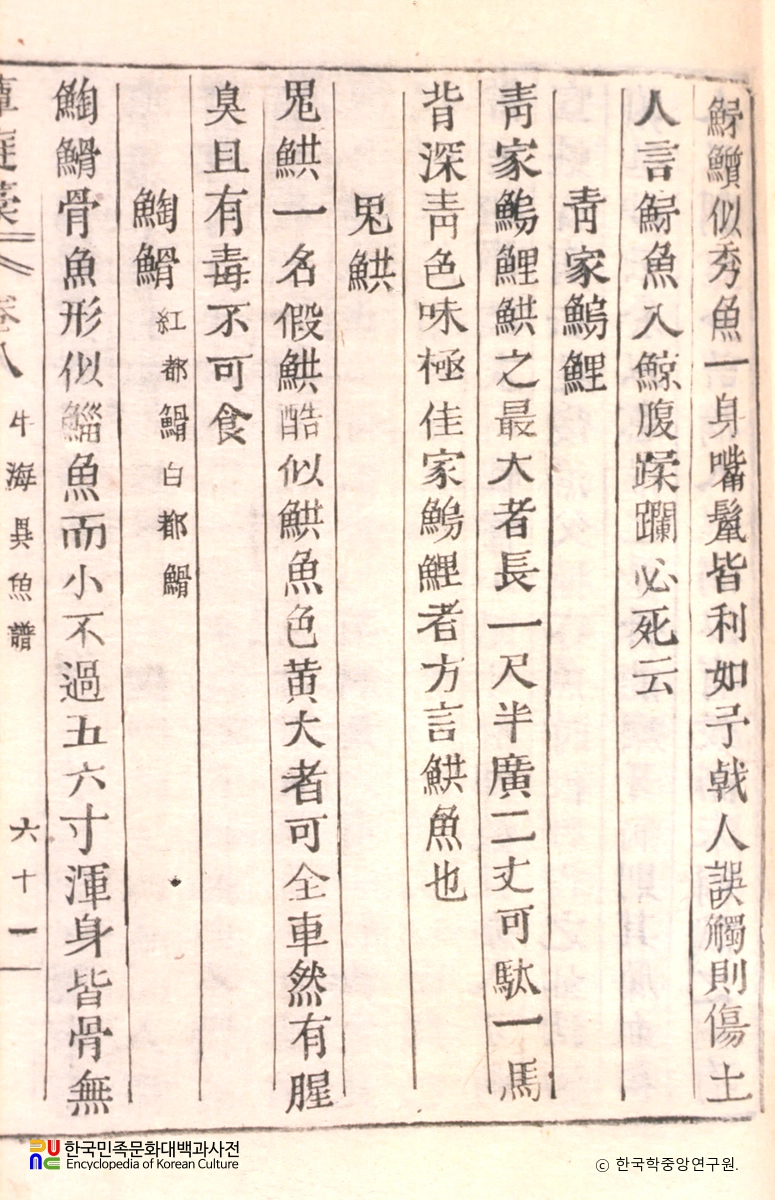 似秀魚一身嘴鬣皆利如予戟人誤觸則傷土
人言魚入鯨腹蹂躙必死云
靑家鯉
靑家鯉䱋之最大者長一尺半廣二丈可駄一馬
背深靑色味極佳家鯉者方言䱋魚也
鬼䱋
鬼䱋一名假䱋酷似䱋魚色黃大者可全車然有腥
臭且有毒不可食
䱡䱻 紅都䱻白都䱻
䱡䱻骨魚形似鯔魚而小不過五六寸渾身皆骨無
藫庭藁 卷八 牛海異魚譜 六十一
한국민족문화대백과사전
Encyclopedia of Korean Culture
ⓒ 한국학중앙연구원.